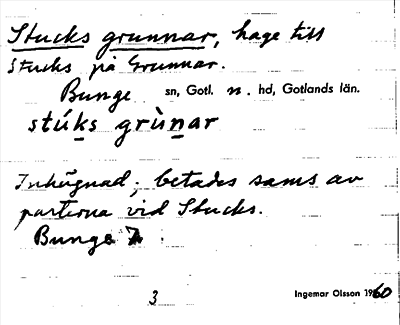 Stucks grunnar, hage till
Stucks på Grunnar.
Bunge sn, Gotl. n. hd, Gotlands län.
stúks grùnar
Inhägnad; betades sams av
parterna vid Stucks.
Bunge
3 Ingemar Olsson 1960